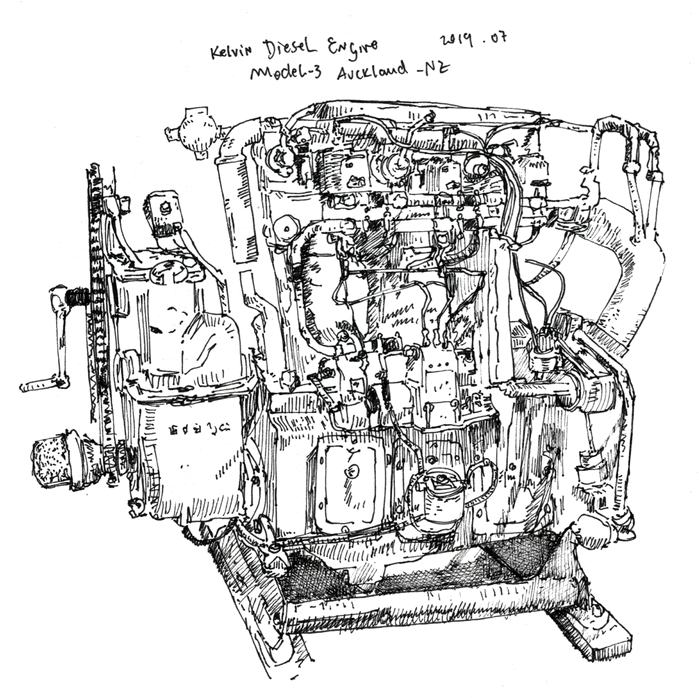 Kelvin Diesel Engine 2019.07
Model-3 Auckland -NZ